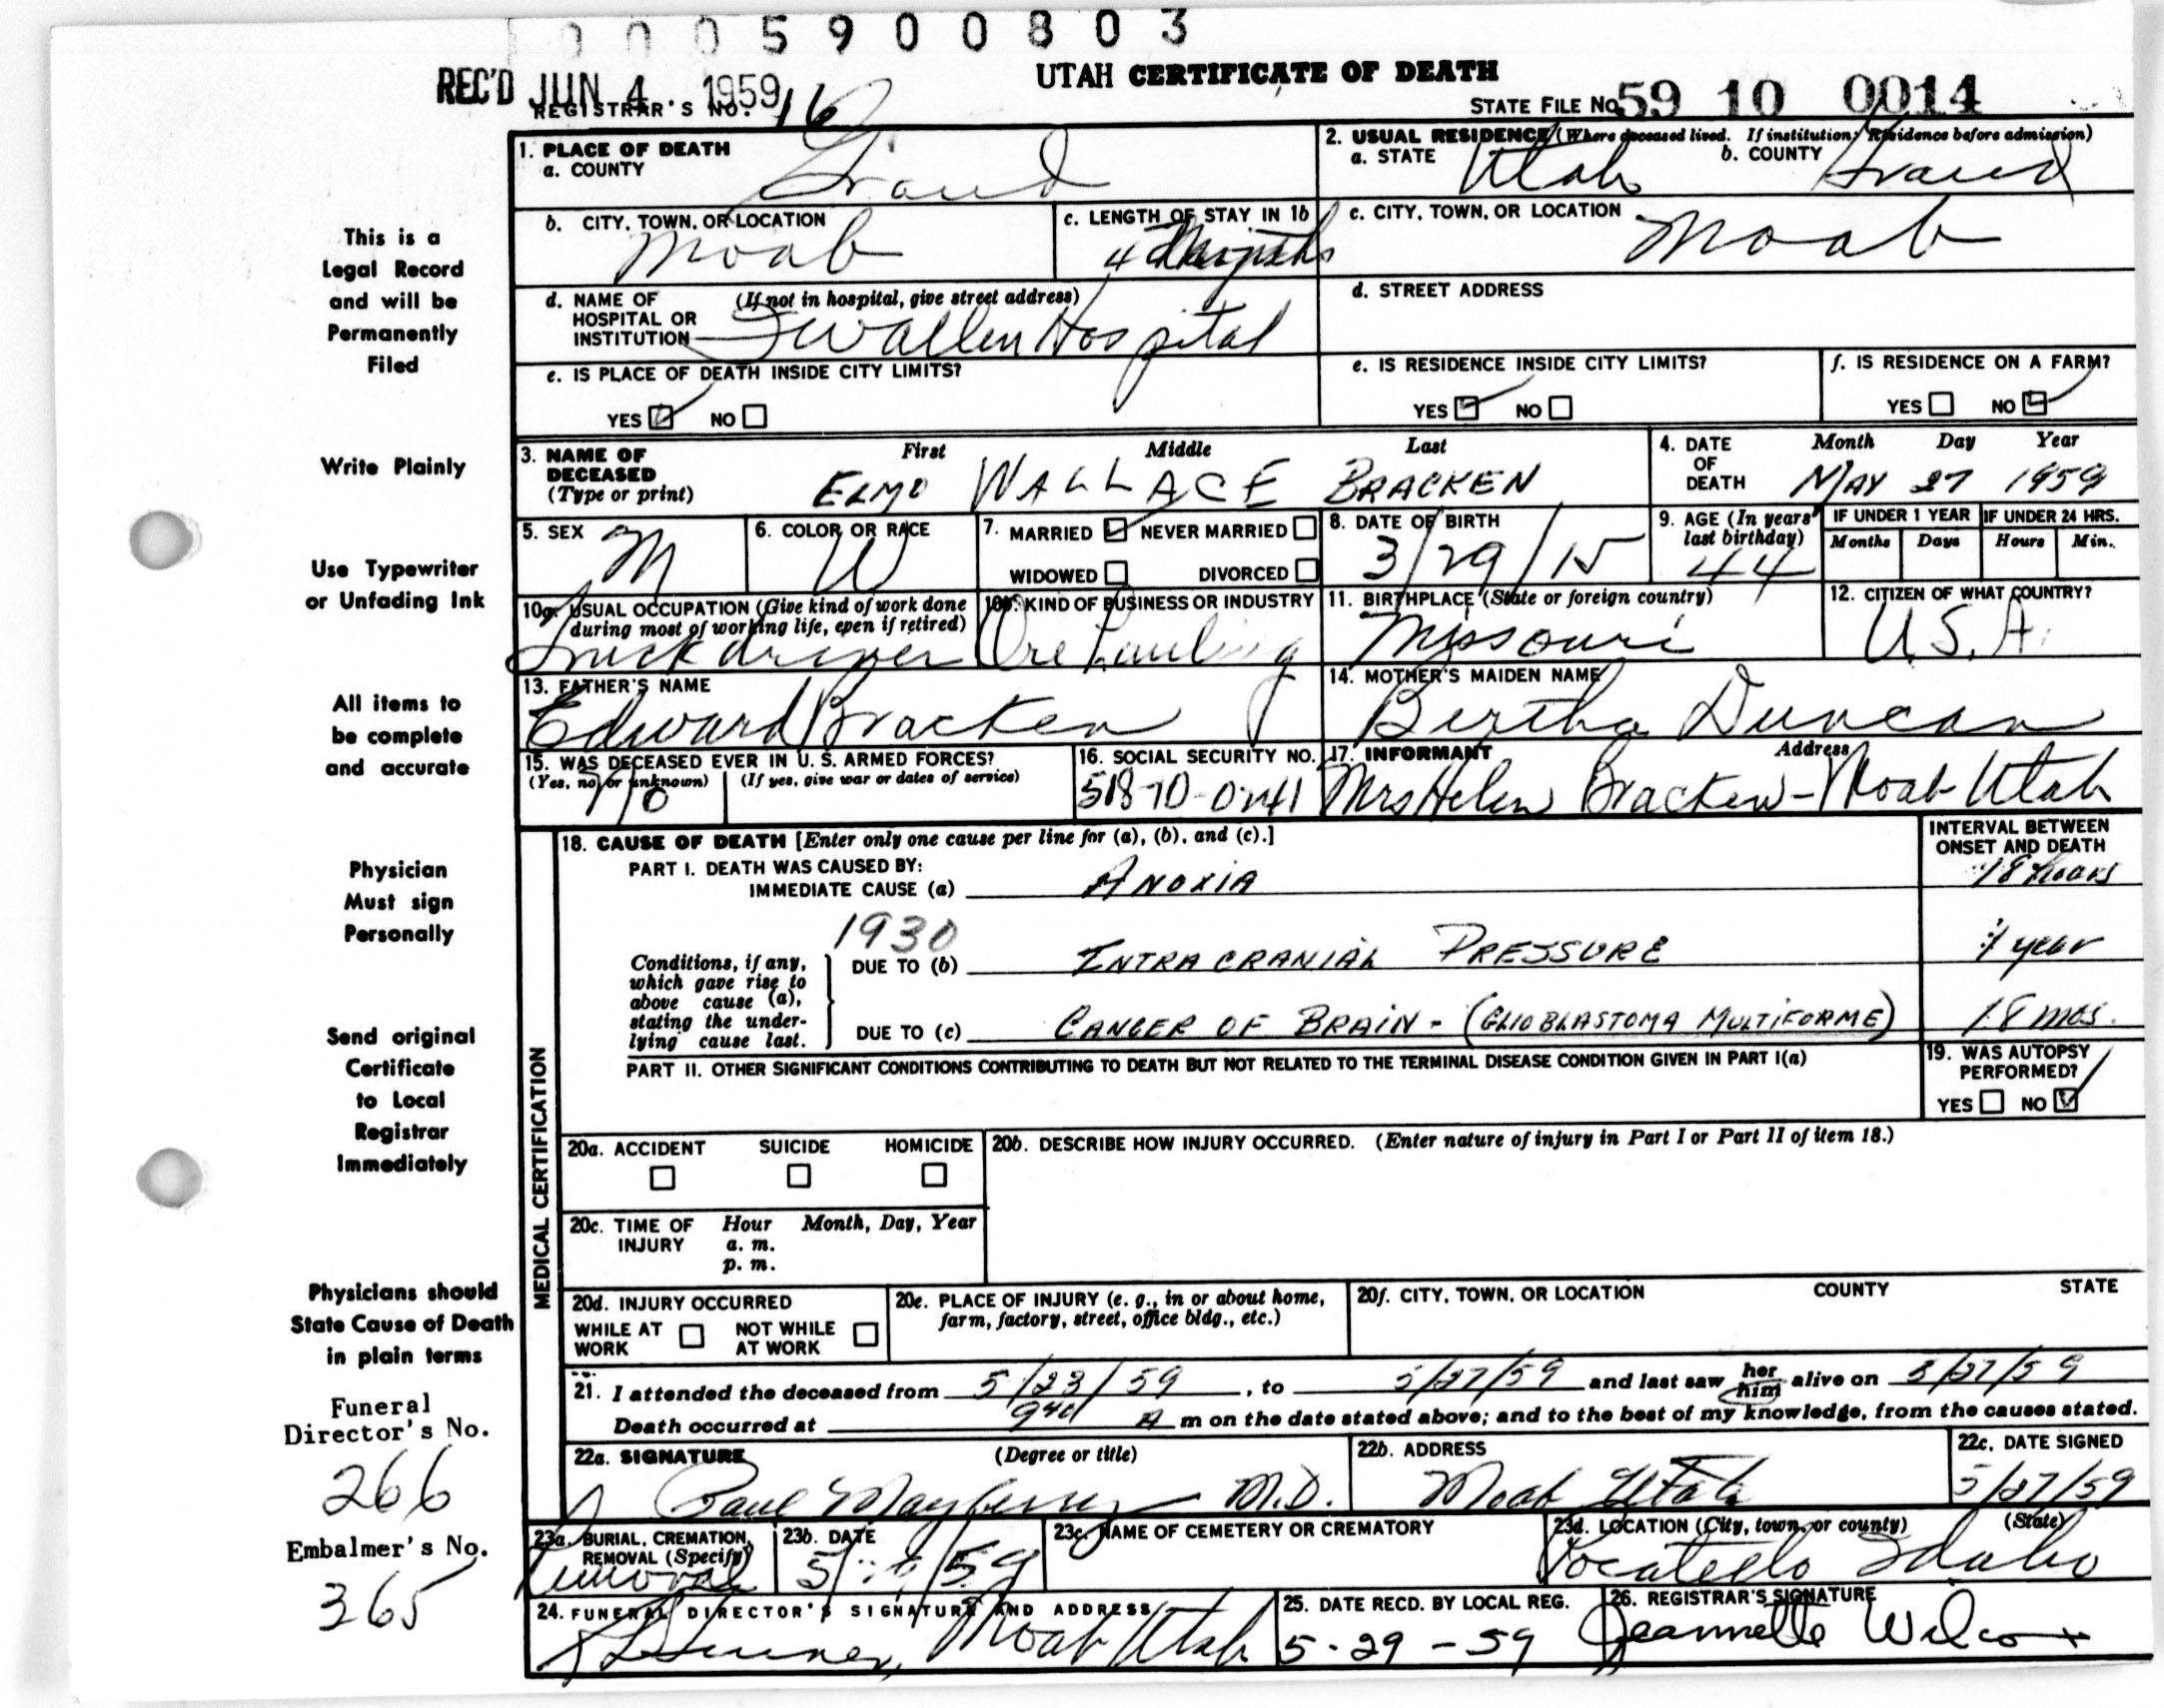 0005900803
REC'D JUN 4 1959
UTAH CERTIFICATE OF DEATH
REGISTRAR'S NO. 16
STATE FILE NO. 59 10 0014
1. PLACE OF DEATH
a. COUNTY Grand
2. USUAL RESIDENCE (Where deceased lived. If institution: Residence before admission)
a. STATE Utah b. COUNTY Grand
b. CITY, TOWN, OR LOCATION Moab
c. LENGTH OF STAY IN 1b 4
c. CITY, TOWN, OR LOCATION Moab
d. NAME OF HOSPITAL OR INSTITUTION (If not in hospital, give street address) Hospital
d. STREET ADDRESS
e. IS PLACE OF DEATH INSIDE CITY LIMITS?
YES NO
e. IS RESIDENCE INSIDE CITY LIMITS?
YES NO
f. IS RESIDENCE ON A FARM?
YES NO
3. NAME OF DECEASED (Type or print)
First Middle Last
ELMO WALLACE BRACKEN
4. DATE OF DEATH
Month Day Year
MAY 27 1959
5. SEX M
6. COLOR OR RACE W
7. MARRIED NEVER MARRIED
WIDOWED DIVORCED
8. DATE OF BIRTH
3/29/15
9. AGE (In years last birthday) 44
IF UNDER 1 YEAR
Months Days
IF UNDER 24 HRS.
Hours Min.
10a. USUAL OCCUPATION (Give kind of work done during most of working life, even if retired)
Truck driver
10b. KIND OF BUSINESS OR INDUSTRY
Ore hauling
11. BIRTHPLACE (State or foreign country)
Missouri
12. CITIZEN OF WHAT COUNTRY?
U.S.A.
13. FATHER'S NAME
Edward Bracken
14. MOTHER'S MAIDEN NAME
Bertha Duncan
15. WAS DECEASED EVER IN U. S. ARMED FORCES?
(Yes, no, or unknown) (If yes, give war or dates of service)
No
16. SOCIAL SECURITY NO.
17. INFORMANT Address
Mrs Helen Bracken - Moab Utah
MEDICAL CERTIFICATION
18. CAUSE OF DEATH [Enter only one cause per line for (a), (b), and (c).]
INTERVAL BETWEEN ONSET AND DEATH
PART I. DEATH WAS CAUSED BY:
IMMEDIATE CAUSE (a) ANOXIA 18 hours
1930
Conditions, if any, which gave rise to above cause (a), stating the underlying cause last.
DUE TO (b) INTRA CRANIAL PRESSURE 1 year
DUE TO (c) CANCER OF BRAIN - (GLIOBLASTOMA MULTIFORME) 18 mos.
PART II. OTHER SIGNIFICANT CONDITIONS CONTRIBUTING TO DEATH BUT NOT RELATED TO THE TERMINAL DISEASE CONDITION GIVEN IN PART I(a)
19. WAS AUTOPSY PERFORMED?
YES NO
20a. ACCIDENT SUICIDE HOMICIDE
20b. DESCRIBE HOW INJURY OCCURRED. (Enter nature of injury in Part I or Part II of item 18.)
20c. TIME OF INJURY Hour Month, Day, Year
a. m.
p. m.
20d. INJURY OCCURRED
WHILE AT WORK NOT WHILE AT WORK
20e. PLACE OF INJURY (e. g., in or about home, farm, factory, street, office bldg., etc.)
20f. CITY, TOWN, OR LOCATION COUNTY STATE
21. I attended the deceased from 5/23/59, to 5/27/59 and last saw her him alive on 5/27/59
Death occurred at 940 A m on the date stated above; and to the best of my knowledge, from the causes stated.
22a. SIGNATURE (Degree or title)
J Paul Mayberry M.D.
22b. ADDRESS
Moab Utah
22c. DATE SIGNED
5/27/59
23a. BURIAL, CREMATION, REMOVAL (Specify)
Removal
23b. DATE
23c. NAME OF CEMETERY OR CREMATORY
23d. LOCATION (City, town, or county) (State)
Pocatello Idaho
24. FUNERAL DIRECTOR'S SIGNATURE AND ADDRESS
Moab Utah
25. DATE RECD. BY LOCAL REG.
5-29-59
26. REGISTRAR'S SIGNATURE
Jeannette Wilcox
This is a
Legal Record
and will be
Permanently
Filed
Write Plainly
Use Typewriter
or Unfading Ink
All items to
be complete
and accurate
Physician
Must sign
Personally
Send original
Certificate
to Local
Registrar
Immediately
Physicians should
State Cause of Death
in plain terms
Funeral
Director's No.
266
Embalmer's No.
365